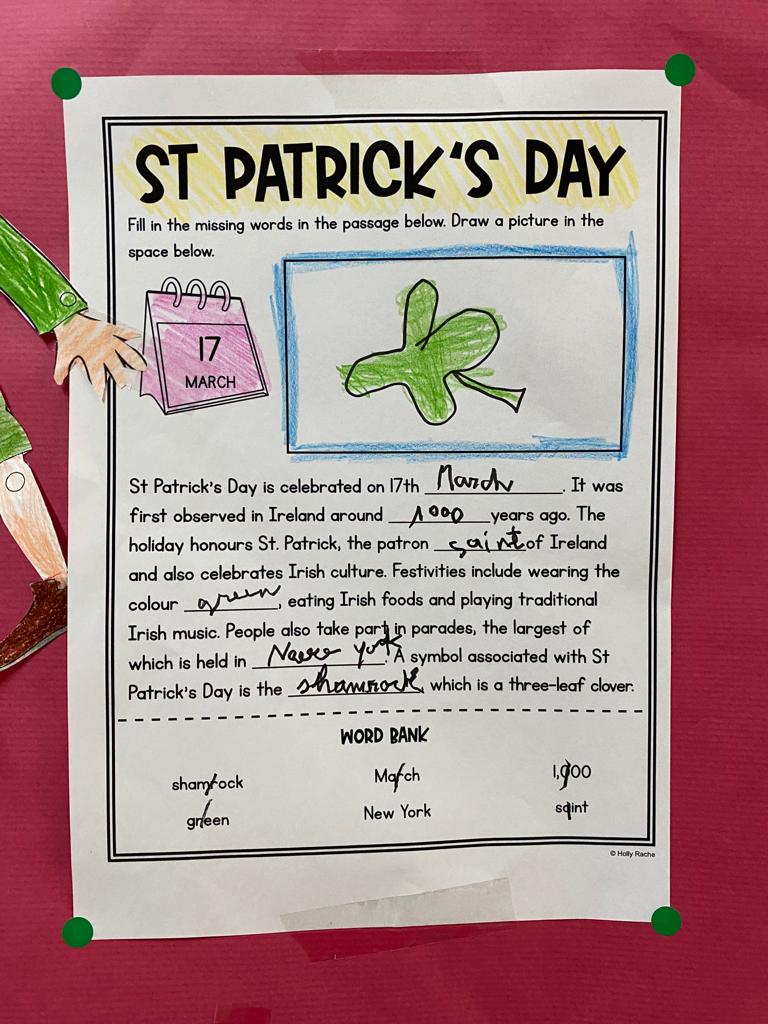 ST PATRICK'S DAY
Fill in the missing words in the passage below. Draw a picture in the
space below.
17
MARCH
St Patrick's Day is celebrated on 17th March. It was
first observed in Ireland around 1000 years ago. The
holiday honours St. Patrick, the patron saint of Ireland
and also celebrates Irish culture. Festivities include wearing the
colour green, eating Irish foods and playing traditional
Irish music. People also take part in parades, the largest of
which is held in Neew york. A symbol associated with St
Patrick's Day is the shamrock, which is a three-leaf clover.
WORD BANK
shamrock March 1,000
green New York saint
© Holly Rache